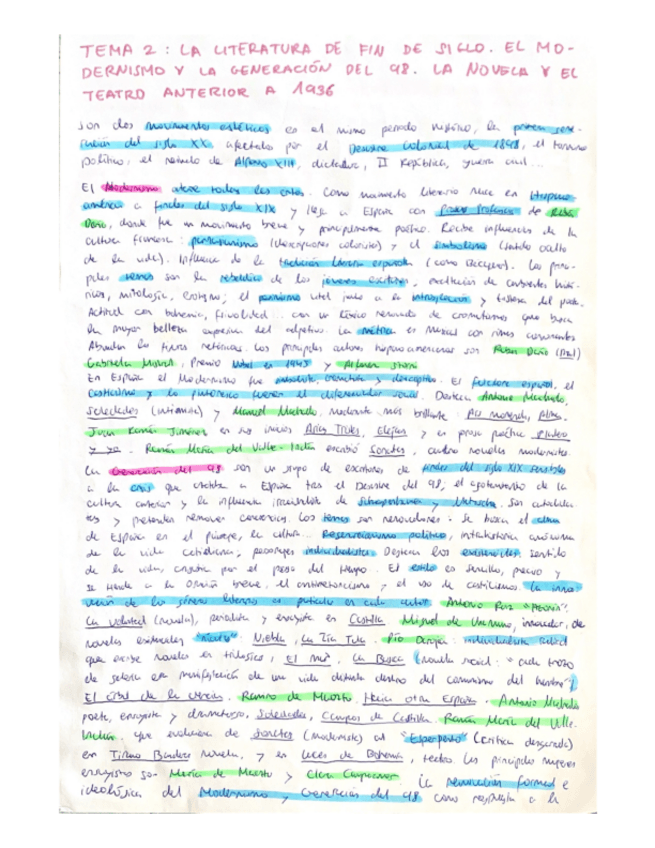 TEMA 2: LA LITERATURA DE FIN DE SIGLO. EL MO-
DERNISMO Y LA GENERACIÓN DEL 98. LA NOVELA Y EL
TEATRO ANTERIOR A 1936
Son dos movimientos estéticos en el mismo periodo histórico, la primera
del siglo XX afectados por el Desastre Colonial de 1898, el
político, el reinado de Alfonso XIII, dictadura, II República, guerra civil...
El Modernismo todas las artes. Como movimiento literario nace en Hispano-
américa a finales del siglo XIX y llega a España con Prosas Profanas de Rubén
Darío, donde fue un movimiento breve y principalmente poético. Recibe influencias de la
cultura francesa: parnasianismo (descripciones coloristas) y el simbolismo (sentido oculto
de la vida). Influencia de la tradición literaria española (como Bécquer). Los princi-
pales temas son la rebeldía de los jóvenes escritores,
mitología, erotismo; el pesimismo vital junto a la introspección y tristeza del poeta.
Actitud con bohemia, frivolidad... con un léxico renovado de cromatismos que busca
la mayor belleza expresiva del adjetivo. La métrica es musical con rimas consonantes
Abundan las figuras retóricas. Los principales autores hispanoamericanos son Rubén Darío (Azul)
Gabriela Mistral, Premio Nobel en 1945 y Alfonsina Storni
En España el Modernismo fue El folclore español, el
casticismo y lo pintoresco fueron el diferenciador social. Destacan Antonio Machado,
Soledades (intimista) y Manuel Machado, modernista más brillante: Alma,
Juan Ramón Jiménez en sus inicios Arias Tristes, Elejías y en prosa poética Platero
y yo. Ramón María del Valle-Inclán escribió Sonatas, cuatro novelas modernistas.
La Generación del 98 son un grupo de escritores de finales del siglo XIX sensibles
a la crisis que existía en España tras el Desastre del 98, el agotamiento de la
cultura anterior y la influencia irracionalista de Schopenhauer y Nietzsche. Son autodidac-
tas y pretenden remover conciencias. Los temas son renovadores: se busca el alma
de España en el paisaje, la cultura... Regeneracionismo político, intrahistoria anónima
de la vida cotidiana; personajes individualistas. Destacan los existenciales: sentido
de la vida, angustia por el paso del tiempo. El estilo es sencillo, preciso y
se tiende a la oración breve, el antirretoricismo y el uso de casticismos. La inno-
vación de los géneros literarios es particular en cada autor. Antonio Ruiz "Azorín".
La Voluntad (novela), periodista y ensayista en Castilla. Miguel de Unamuno, innovador, de
novelas existenciales "nivola": Niebla, La Tía Tula. Pío Baroja: individualista radical
que escribe novelas en trilogías, La Busca (novela social: "cada trozo
de es manifestación de una vida distinta dentro del comunismo del hambre")
El árbol de la ciencia. Ramiro de Maeztu. Hacia otra España. Antonio Machado
poeta, ensayista y dramaturgo, Soledades, Campos de Castilla. Ramón María del Valle-
Inclán. que evoluciona de Sonatas (modernista) al "Esperpento" (crítica desgarrada)
en Tirano Banderas novela, y en Luces de Bohemia, teatro. Las principales mujeres
ensayismo son María de Maeztu y Clara Campoamor. La renovación formal e
ideológica del Modernismo y Generación del 98 como respuesta a la